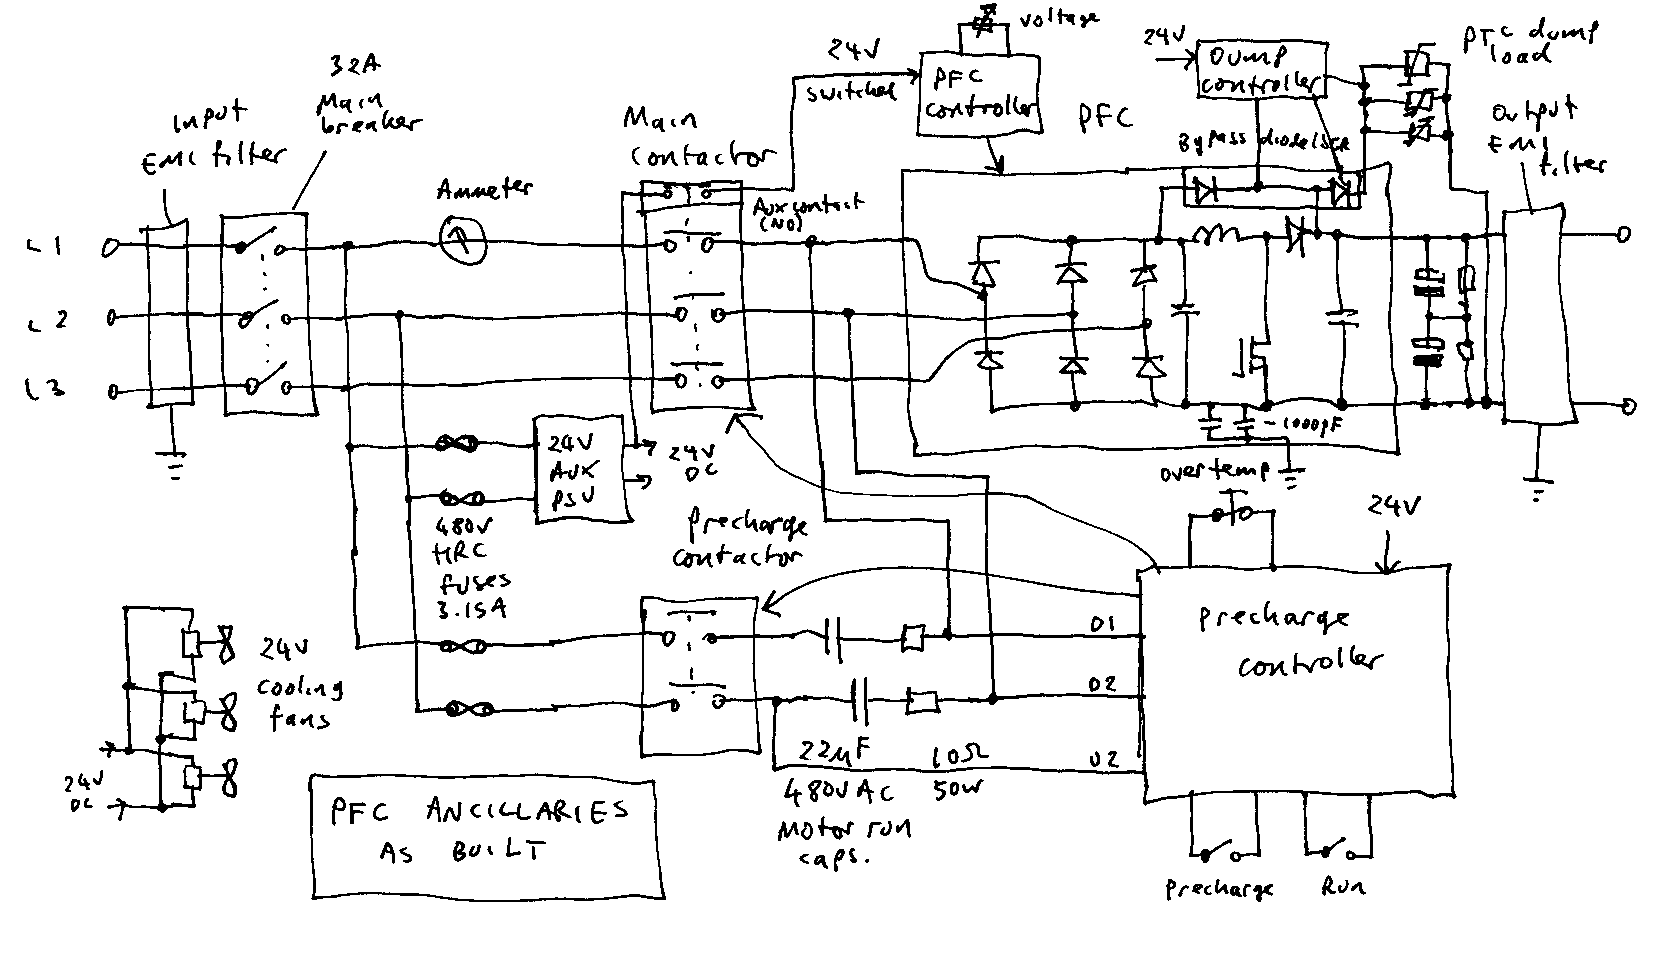 Input
EMC filter
32A
Main
breaker
Ammeter
Main
Contactor
24V
switched
PFC
controller
voltage
PFC
24V
Dump
controller
PTC dump
load
Output
EMI
filter
Bypass diode/SCR
Aux contact
(NO)
L1
L2
L3
24V
AUX
PSU
24V
DC
480V
HRC
fuses
3.15A
Precharge
contactor
1000pF
overtemp
24V
Precharge
controller
01
02
U2
22µF
480VAC
Motor run
caps.
10Ω
50W
Precharge
Run
24V
cooling
fans
24V
DC
PFC ANCILLARIES
AS BUILT